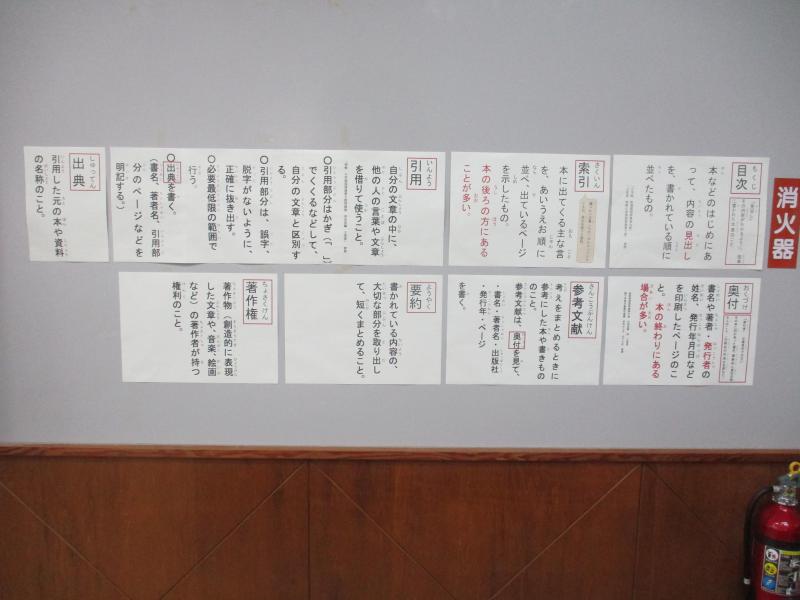 消火器
もくじ
目次
本などのはじめにあ
って、内容の見出し
を、書かれている順に
並べたもの。
さくいん
索引
本に出てくる主な言
を、あいうえお順に
並べ、出ているページ
を示したもの。
本の後ろの方にある
ことが多い。
いんよう
引用
自分の文章の中に、
他の人の言葉や文章
を借りて使うこと。
○引用部分はかぎ（「 」）
でくくるなどして、
自分の文章と区別す
る。
○引用部分は、誤字、
脱字がないように、
正確に抜き出す。
○必要最低限の範囲で
行う。
○出典を書く。
（書名、著者名、引用部
分のページなどを
明記する。）
しゅってん
出典
引用した元の本や資料
の名称のこと。
おくづけ
奥付
書名や著者・発行者の
姓名、発行年月日など
を印刷したページのこ
と。本の終わりにある
場合が多い。
さんこうぶんけん
参考文献
考えをまとめるときに
参考にした本や書きもの
のこと。
参考文献は、奥付を見て、
・書名・著者名・出版社
・発行年・ページ
を書く。
ようやく
要約
書かれている内容の、
大切な部分を取り出し
て、短くまとめること。
ちょさくけん
著作権
著作物（創造的に表現
した文章や、音楽、絵画
など）の著作者が持つ
権利のこと。